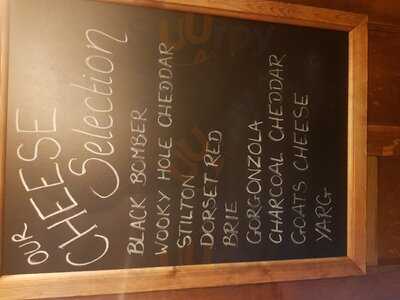 OUR
CHEESE
Selection
BLACK BOMBER
WOOKY HOLE CHEDDAR
STILTON
DORSET RED
BRIE
GORGONZOLA
CHARCOAL CHEDDAR
GOATS CHEESE
YARG